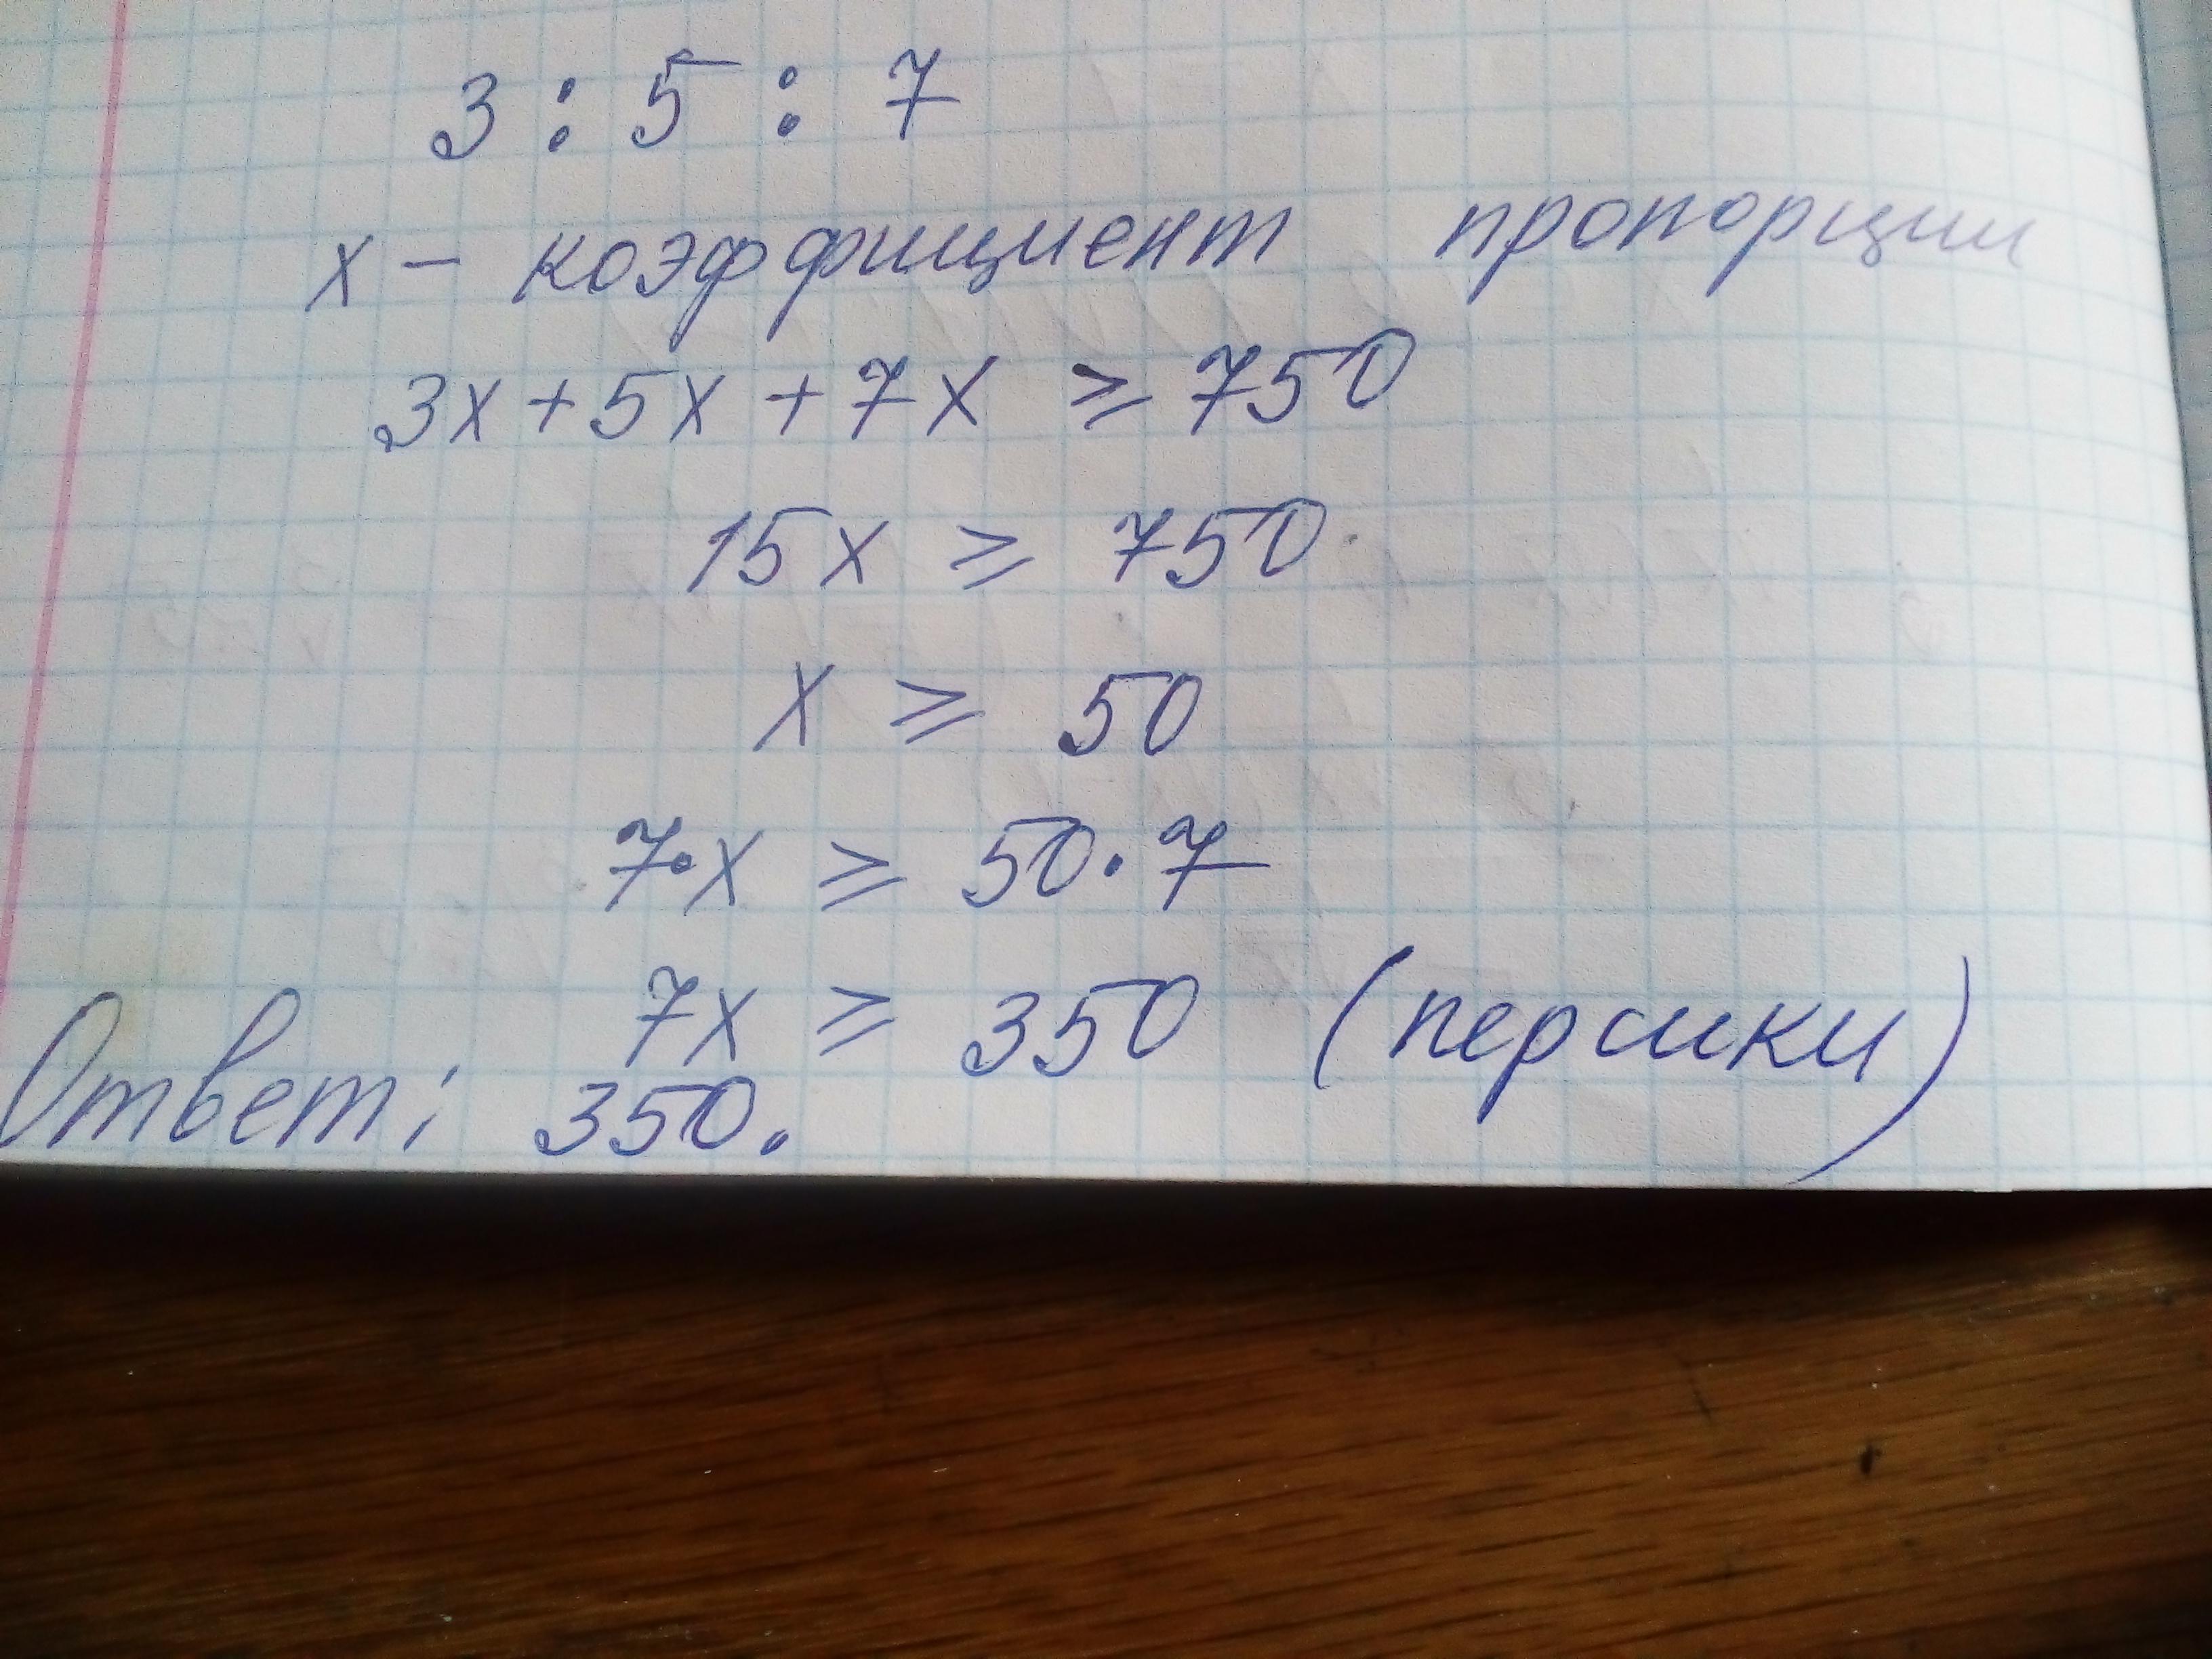 3 : 5 : 7
х – коэффициент пропорции
3х + 5х + 7х ⩾ 750
15х ⩾ 750
х ⩾ 50
7·х ⩾ 50·7
7х ⩾ 350 (персики)
Ответ: 350.